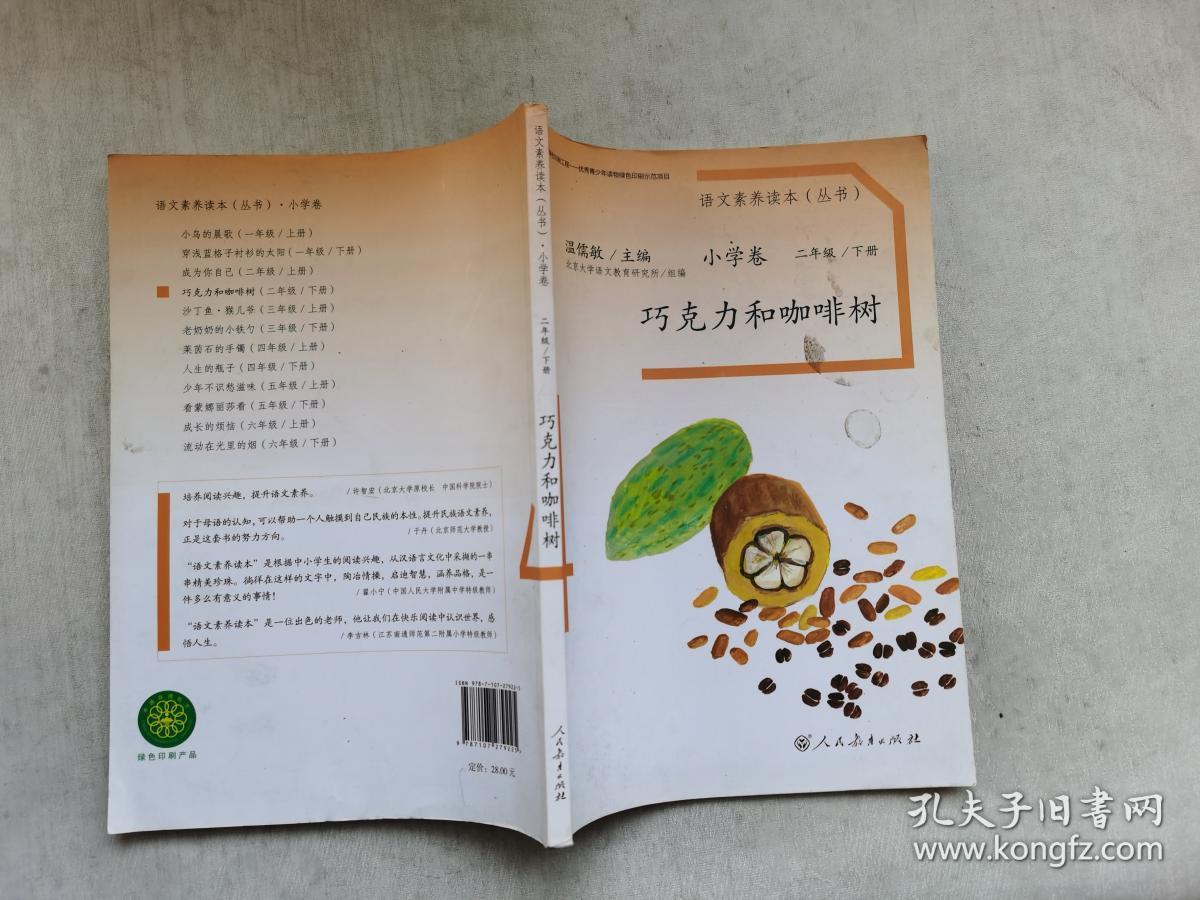 语文素养读本（丛书）·小学卷
小鸟的晨歌（一年级/上册）
穿浅蓝格子衬衫的太阳（一年级/下册）
成为你自己（二年级/上册）
巧克力和咖啡树（二年级/下册）
沙丁鱼·猴儿爷（三年级/上册）
老奶奶的小铁勺（三年级/下册）
莱茵石的手镯（四年级/上册）
人生的瓶子（四年级/下册）
少年不识愁滋味（五年级/上册）
看蒙娜丽莎看（五年级/下册）
成长的烦恼（六年级/上册）
流动在光里的烟（六年级/下册）
培养阅读兴趣，提升语文素养。
/许智宏（北京大学原校长 中国科学院院士）
对于母语的认知，可以帮助一个人触摸到自己民族的本性。提升民族语文素养，
正是这套书的努力方向。
/于丹（北京师范大学教授）
“语文素养读本”是根据中小学生的阅读兴趣，从汉语言文化中采撷的一串
串精美珍珠。徜徉在这样的文字中，陶冶情操，启迪智慧，涵养品格，是一
件多么有意义的事情！
/翟小宁（中国人民大学附属中学特级教师）
“语文素养读本”是一位出色的老师，他让我们在快乐阅读中认识世界，感
悟人生。
/李吉林（江苏南通师范第二附属小学特级教师）
绿色印刷产品
ISBN 978-7-107-27922-5
9 787107 279225
定价：28.00 元
语文素养读本（丛书）·小学卷
二年级/下册
巧克力和咖啡树
人民教育出版社
优秀青少年读物绿色印刷示范项目
语文素养读本（丛书）
温儒敏/主编
北京大学语文教育研究所/组编
小学卷 二年级/下册
巧克力和咖啡树
人民教育出版社
孔夫子旧书网
www.kongfz.com